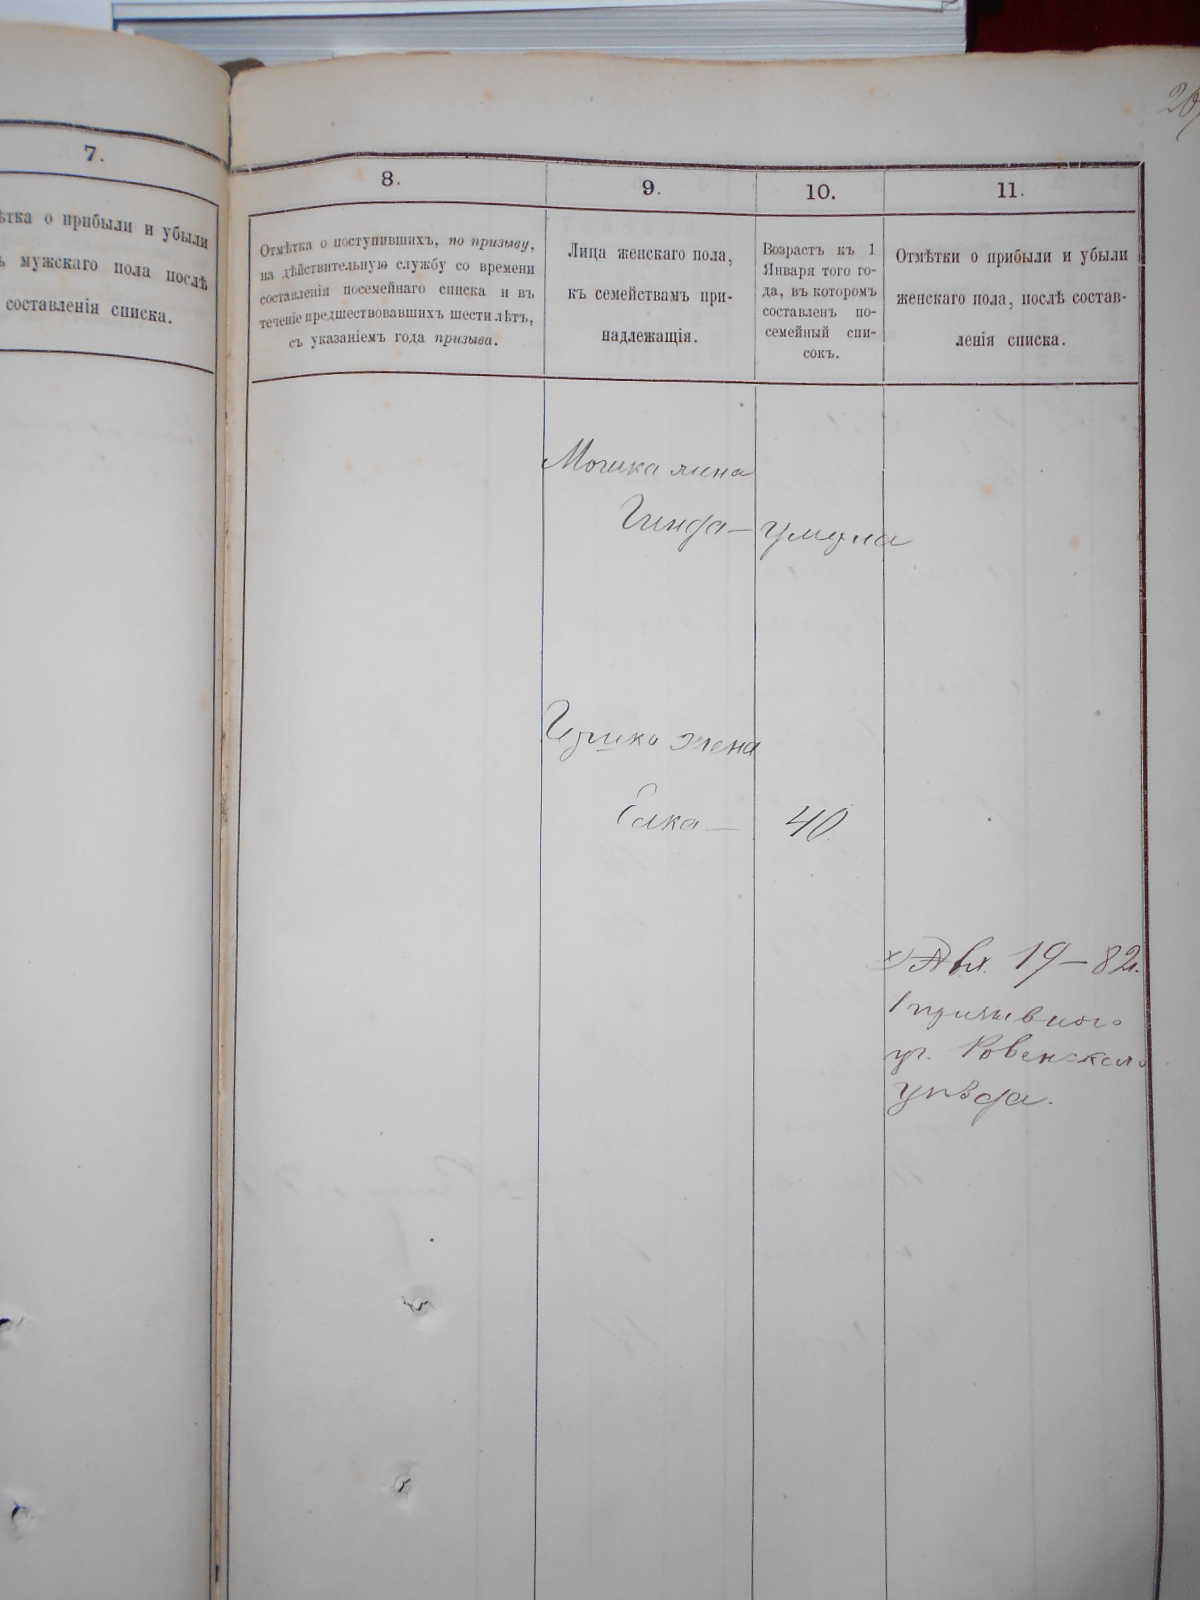 7.
ѣтка о прибыли и убыли
ъ мужскаго пола послѣ
составленія списка.
8.
Отмѣтка о поступившихъ, по призыву,
на дѣйствительную службу со времени
составленія посемейнаго списка и въ
теченіе предшествовавшихъ шести лѣтъ,
съ указаніемъ года призыва.
9.
Лица женскаго пола,
къ семействамъ при-
надлежащія.
10.
Возрастъ къ 1
Января того го-
да, въ которомъ
составленъ по-
семейный спи-
сокъ.
11.
Отмѣтки о прибыли и убыли
женскаго пола, послѣ состав-
ленія списка.
Мошка жена
Гинда — умерла
жена
Елка — 40
19 — 82
1 призывного
уч. Ровенскаго
уѣзда.